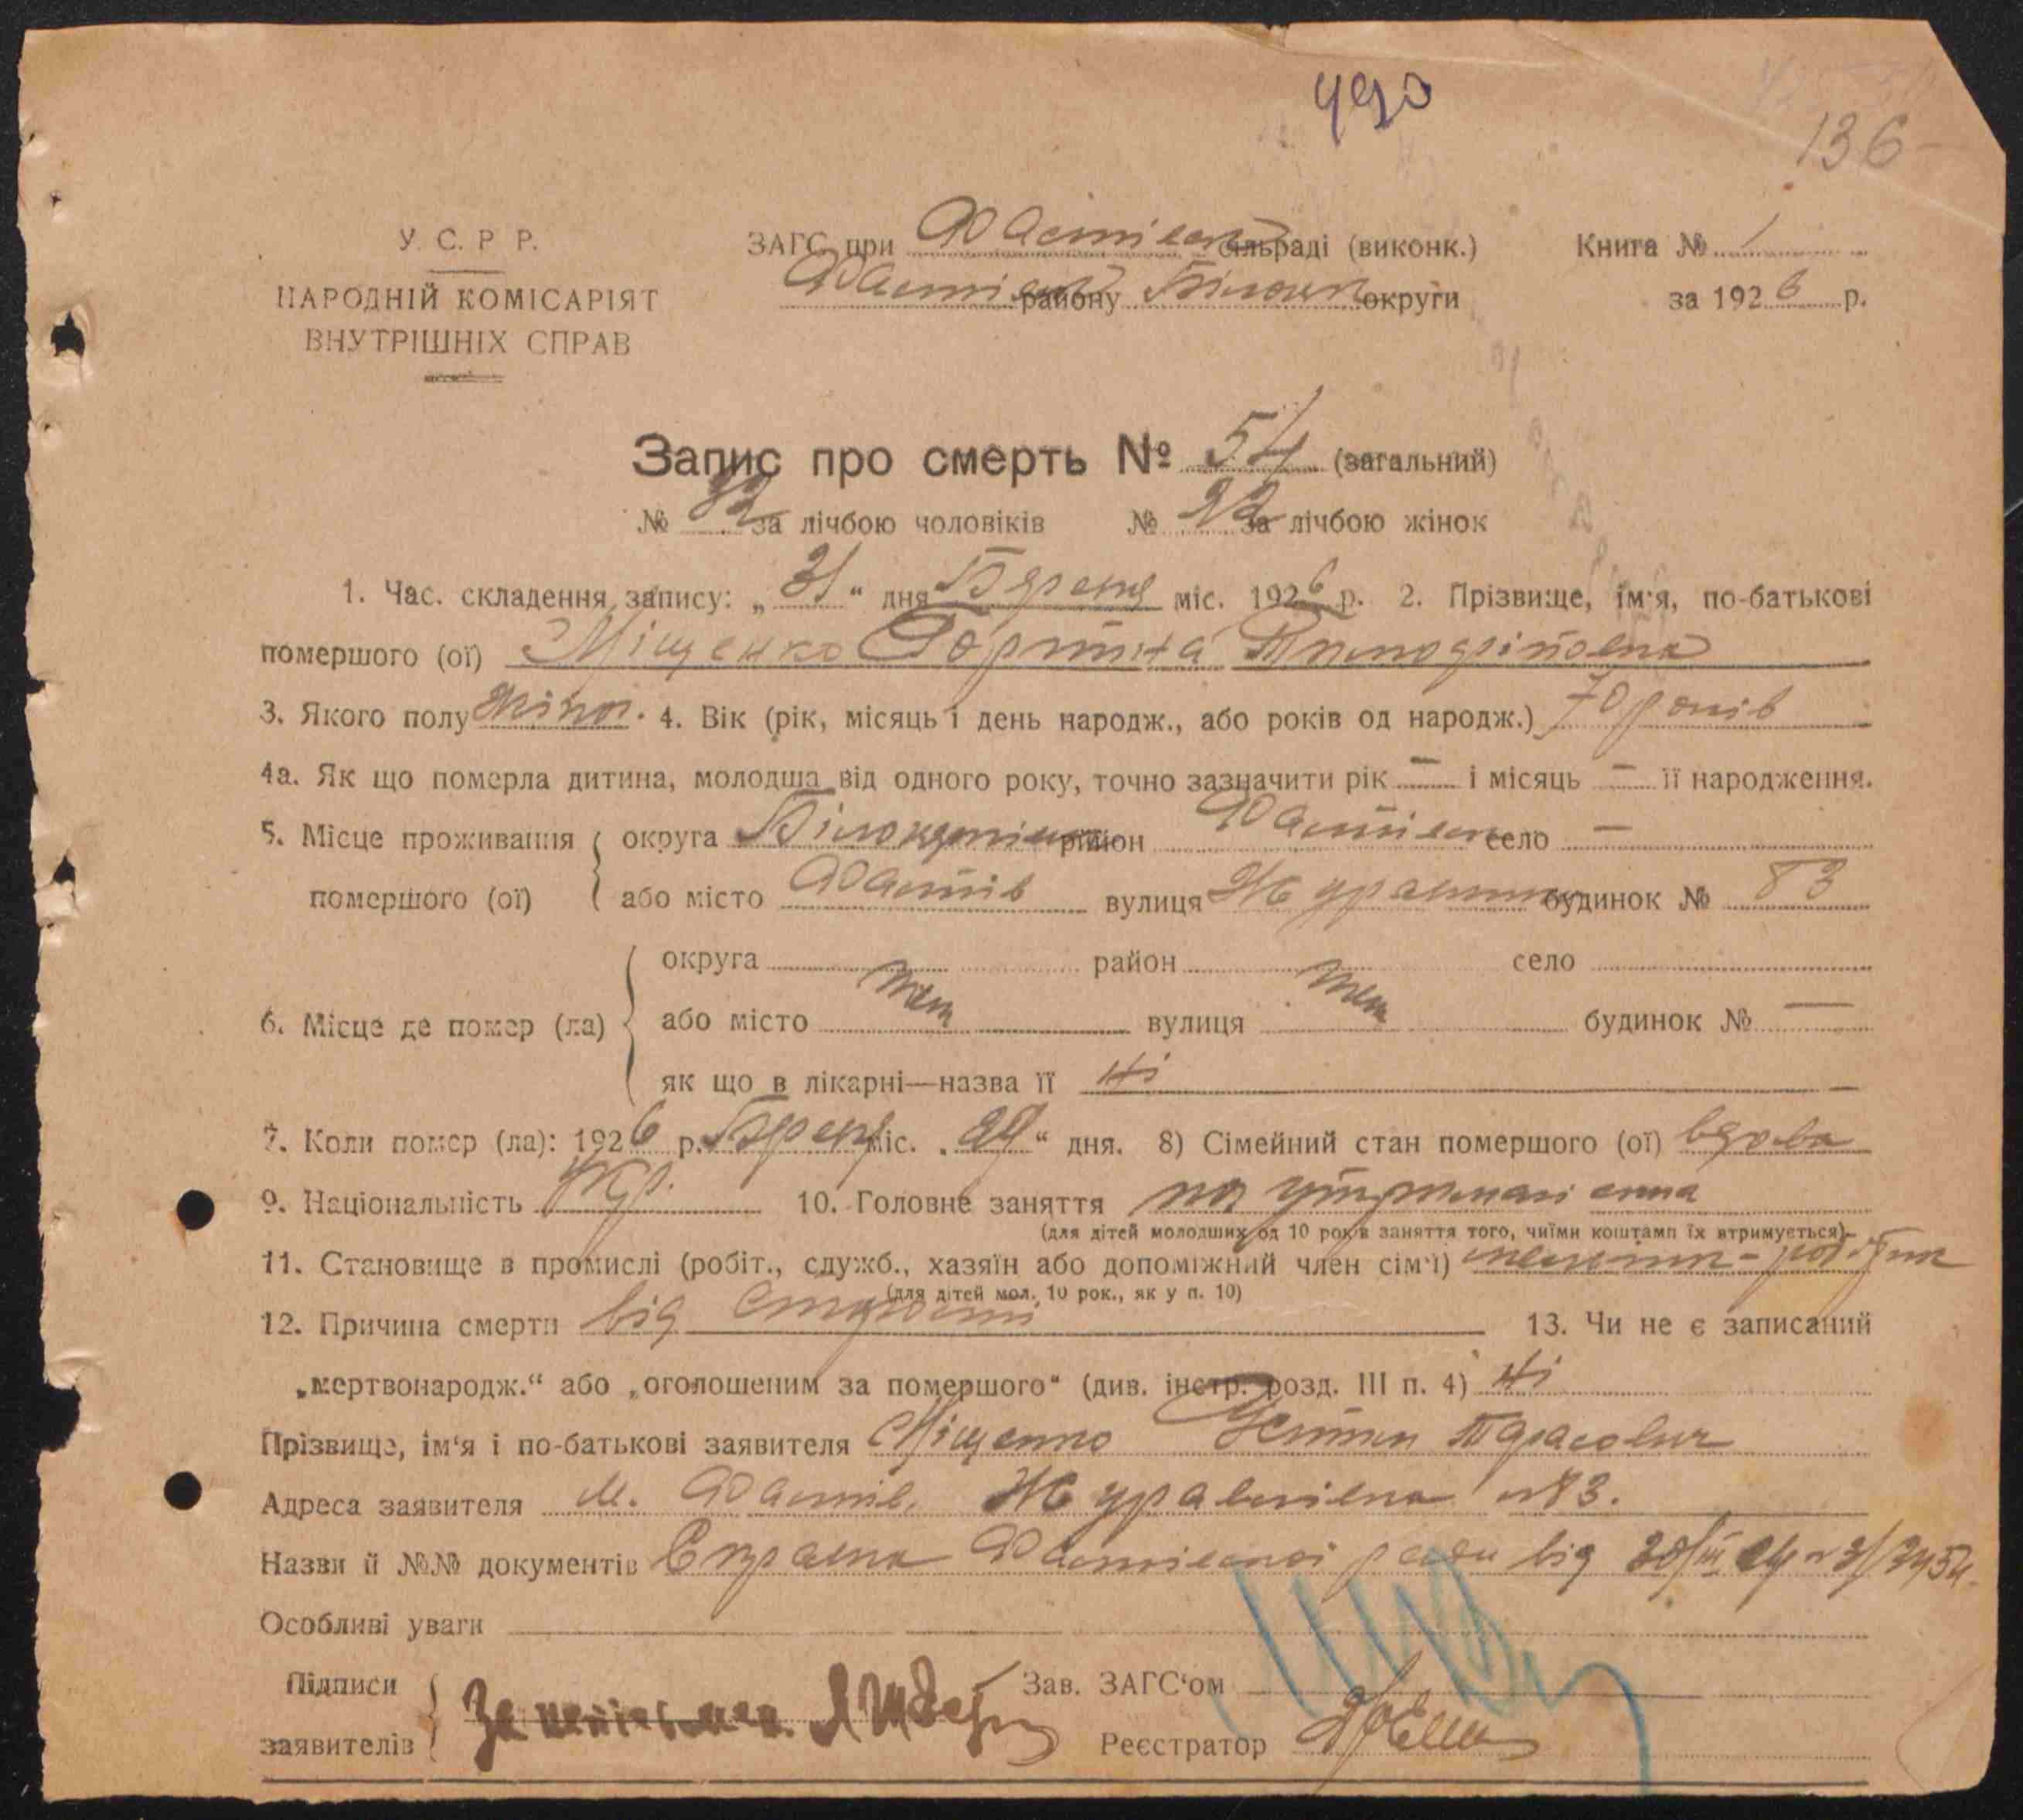 136
У. С. Р. Р.
НАРОДНІЙ КОМІСАРІЯТ
ВНУТРІШНІХ СПРАВ
ЗАГС при Фастівськ сільраді (виконк.)
Фастівськ району Білоцер округи
Книга № 1
за 1926 р.
Запис про смерть № 54 (загальний)
№ 32 за лічбою чоловіків № 22 за лічбою жінок
1. Час. складення запису: „31“ дня Березня міс. 1926 р. 2. Прізвище, ім'я, по-батькові
помершого (ої) Міщенко Горпина Тимофіївна
3. Якого полу жіноч. 4. Вік (рік, місяць і день народж., або років од народж.) 70 років
4а. Як що померла дитина, молодша від одного року, точно зазначити рік — і місяць — її народження.
5. Місце проживання округа Білоцерківськ район Фастівськ село —
помершого (ої) або місто Фастів вулиця Журавлівка будинок № 83
округа район село
6. Місце де помер (ла) або місто теж вулиця теж будинок № —
як що в лікарні—назва її Ні
7. Коли помер (ла): 1926 р. Берез міс. „29“ дня. 8) Сімейний стан помершого (ої) вдова
9. Національність Укр. 10. Головне заняття на утриманні сина
(для дітей молодших од 10 років заняття того, чиїми коштами їх втримується)
11. Становище в промислі (робіт., служб., хазяїн або допоміжний член сім'ї)
(для дітей мол. 10 рок., як у п. 10)
12. Причина смерти від старости 13. Чи не є записаний
„мертвонародж.“ або „оголошеним за помершого“ (див. інстр. розд. III п. 4) Ні
Прізвище, ім'я і по-батькові заявителя Міщенко Устин Тарасович
Адреса заявителя м. Фастів, Журавлівка №83.
Назви й №№ документів Справка Фастівської ради від
Особливі уваги
Підписи
заявителів
Зав. ЗАГС'ом
Реєстратор